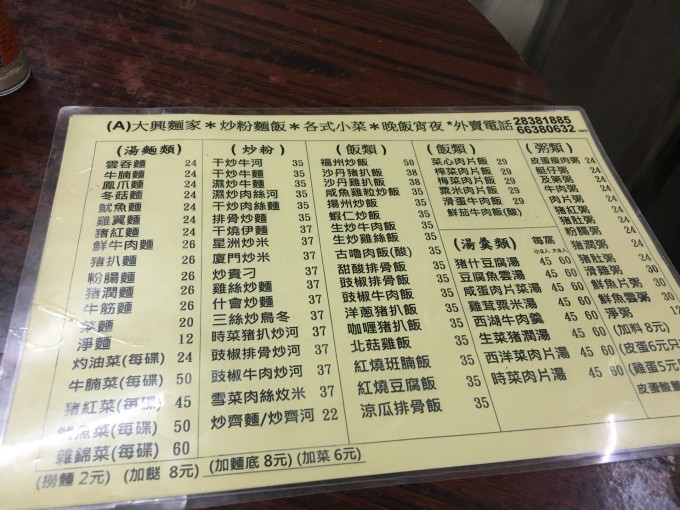 (A)大興麵家＊炒粉麵飯＊各式小菜＊晚飯宵夜*外賣電話 28381885
66380632
(湯麵類)
雲吞麵 24
牛腩麵 24
鳳爪麵 24
冬菇麵 24
魷魚麵 24
雞翼麵 24
豬紅麵 24
鮮牛肉麵 26
豬扒麵 26
粉腸麵 26
豬潤麵 26
牛筋麵 26
菜麵 20
淨麵 12
灼油菜(每碟) 24
牛腩菜(每碟) 50
豬紅菜(每碟) 45
魷魚菜(每碟) 50
雜錦菜(每碟) 60
(炒粉)
干炒牛河 35
干炒牛麵 35
濕炒牛河 35
濕炒肉絲河 35
干炒肉絲麵 35
排骨炒麵 35
干燒伊麵 35
星洲炒米 37
廈門炒米 37
炒貴刁 37
雞絲炒麵 37
什會炒麵 37
三絲炒烏冬 37
時菜豬扒炒河 37
豉椒排骨炒河 37
豉椒牛肉炒河 37
雪菜肉絲炆米 37
炒齋麵/炒齋河 22
(飯類)
福州炒飯 50
沙丹豬扒飯 38
沙丹雞扒飯 38
咸魚雞粒炒飯 35
揚州炒飯 35
蝦仁炒飯 35
生炒牛肉飯 35
生炒雞絲飯 35
古嚕肉飯(酸) 35
甜酸排骨飯 35
豉椒排骨飯 35
豉椒牛肉飯 35
洋蔥豬扒飯 35
咖喱豬扒飯 35
北菇雞飯 35
紅燒班腩飯 35
紅燒豆腐飯 35
涼瓜排骨飯 35
(飯類)
菜心肉片飯 29
榨菜肉片飯 29
梅菜肉片飯 29
粟米肉片飯 29
滑蛋牛肉飯 29
鮮茄牛肉飯(酸)
(湯羹類) 每窩
小2人 大4人
豬什豆腐湯 45 60
豆腐魚雲湯 45 60
咸蛋肉片菜湯 45 60
雞茸粟米湯 45 60
西湖牛肉羹 45 60
生菜豬潤湯 45 60
西洋菜肉片湯 45 60
時菜肉片湯 45 60
(粥類)
皮蛋瘦肉粥 24
艇仔粥 24
及第粥 24
牛肉粥 24
肉片粥 24
豬紅粥 24
豬肚粥 24
粉腸粥 24
豬潤粥 24
滑雞粥 30
鮮魚片粥 30
鮮魚雲粥 30
淨粥 12
(加料 8元)
(皮蛋 6元只
(雞蛋 5元
皮蛋酸薑
(撈麵 2元) (加餸 8元) (加麵底 8元) (加菜 6元)